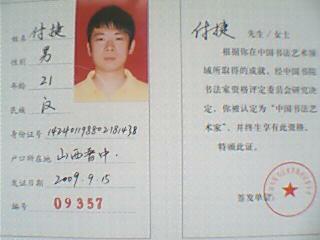 姓名 付捷
性别 男
年龄 21
民族 汉
身份证号 142401198802181438
户口所在地 山西晋中.
发证日期 2009.9.15
编号 09357
付捷 先生/女士
根据你在中国书法艺术领
域所取得的成就，经中国书院
书法家资格评定委员会研究决
定，你被认定为“中国书法艺
术家”，并终生享有此资格。
特颁此证。
签发单位：